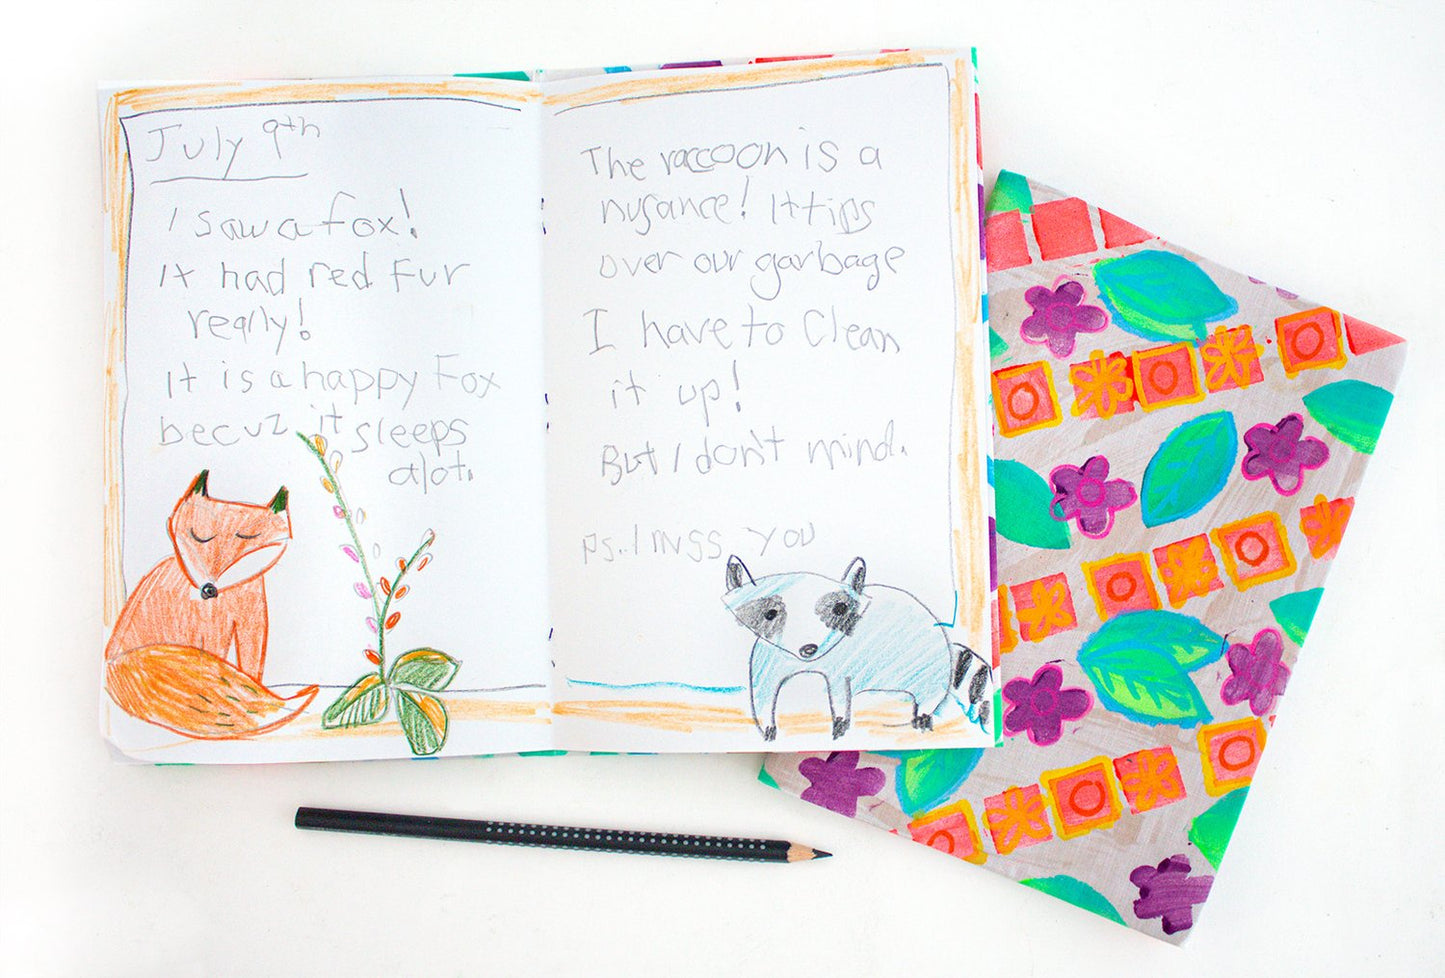 July 9th
I saw a fox!
It had red Fur
really!
It is a happy Fox
becuz it sleeps
alot.
The raccoon is a
nusance! It tips
over our garbage
I have to Clean
it up!
But I don't mind.
ps. I miss you